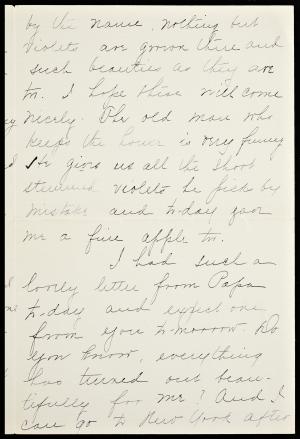 by the name, nothing but
violets are grown there and
such beauties as they are
too. I hope these will come
nicely. The old man who
keeps the house is very funny
He gives us all the short
stemmed violets he picks by
mistake and to-day gave
me a fine apple too.
I had such a
lovely letter from Papa
to-day and expect one
from you to-morrow. Do
you know, everything
has turned out beau-
tifully for me! And I
can go to New York after